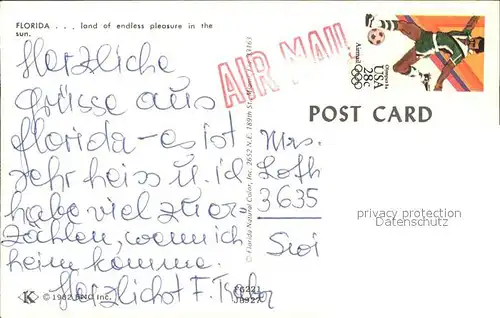 FLORIDA . . . land of endless pleasure in the
sun.
Herzliche
Grüsse aus
Florida - es ist
sehr heiss u. ich
habe viel zu er-
zählen, wenn ich
heim komme.
Herzlichst F.
AIR MAIL
© Florida Natural Color, Inc. 2652 N.E. 189th St. Miami, 33163
Olympics 84
USA
28c
Airmail
POST CARD
Mrs.
Loth
3635
privacy protection
Datenschutz
K © 1982 FNC Inc.